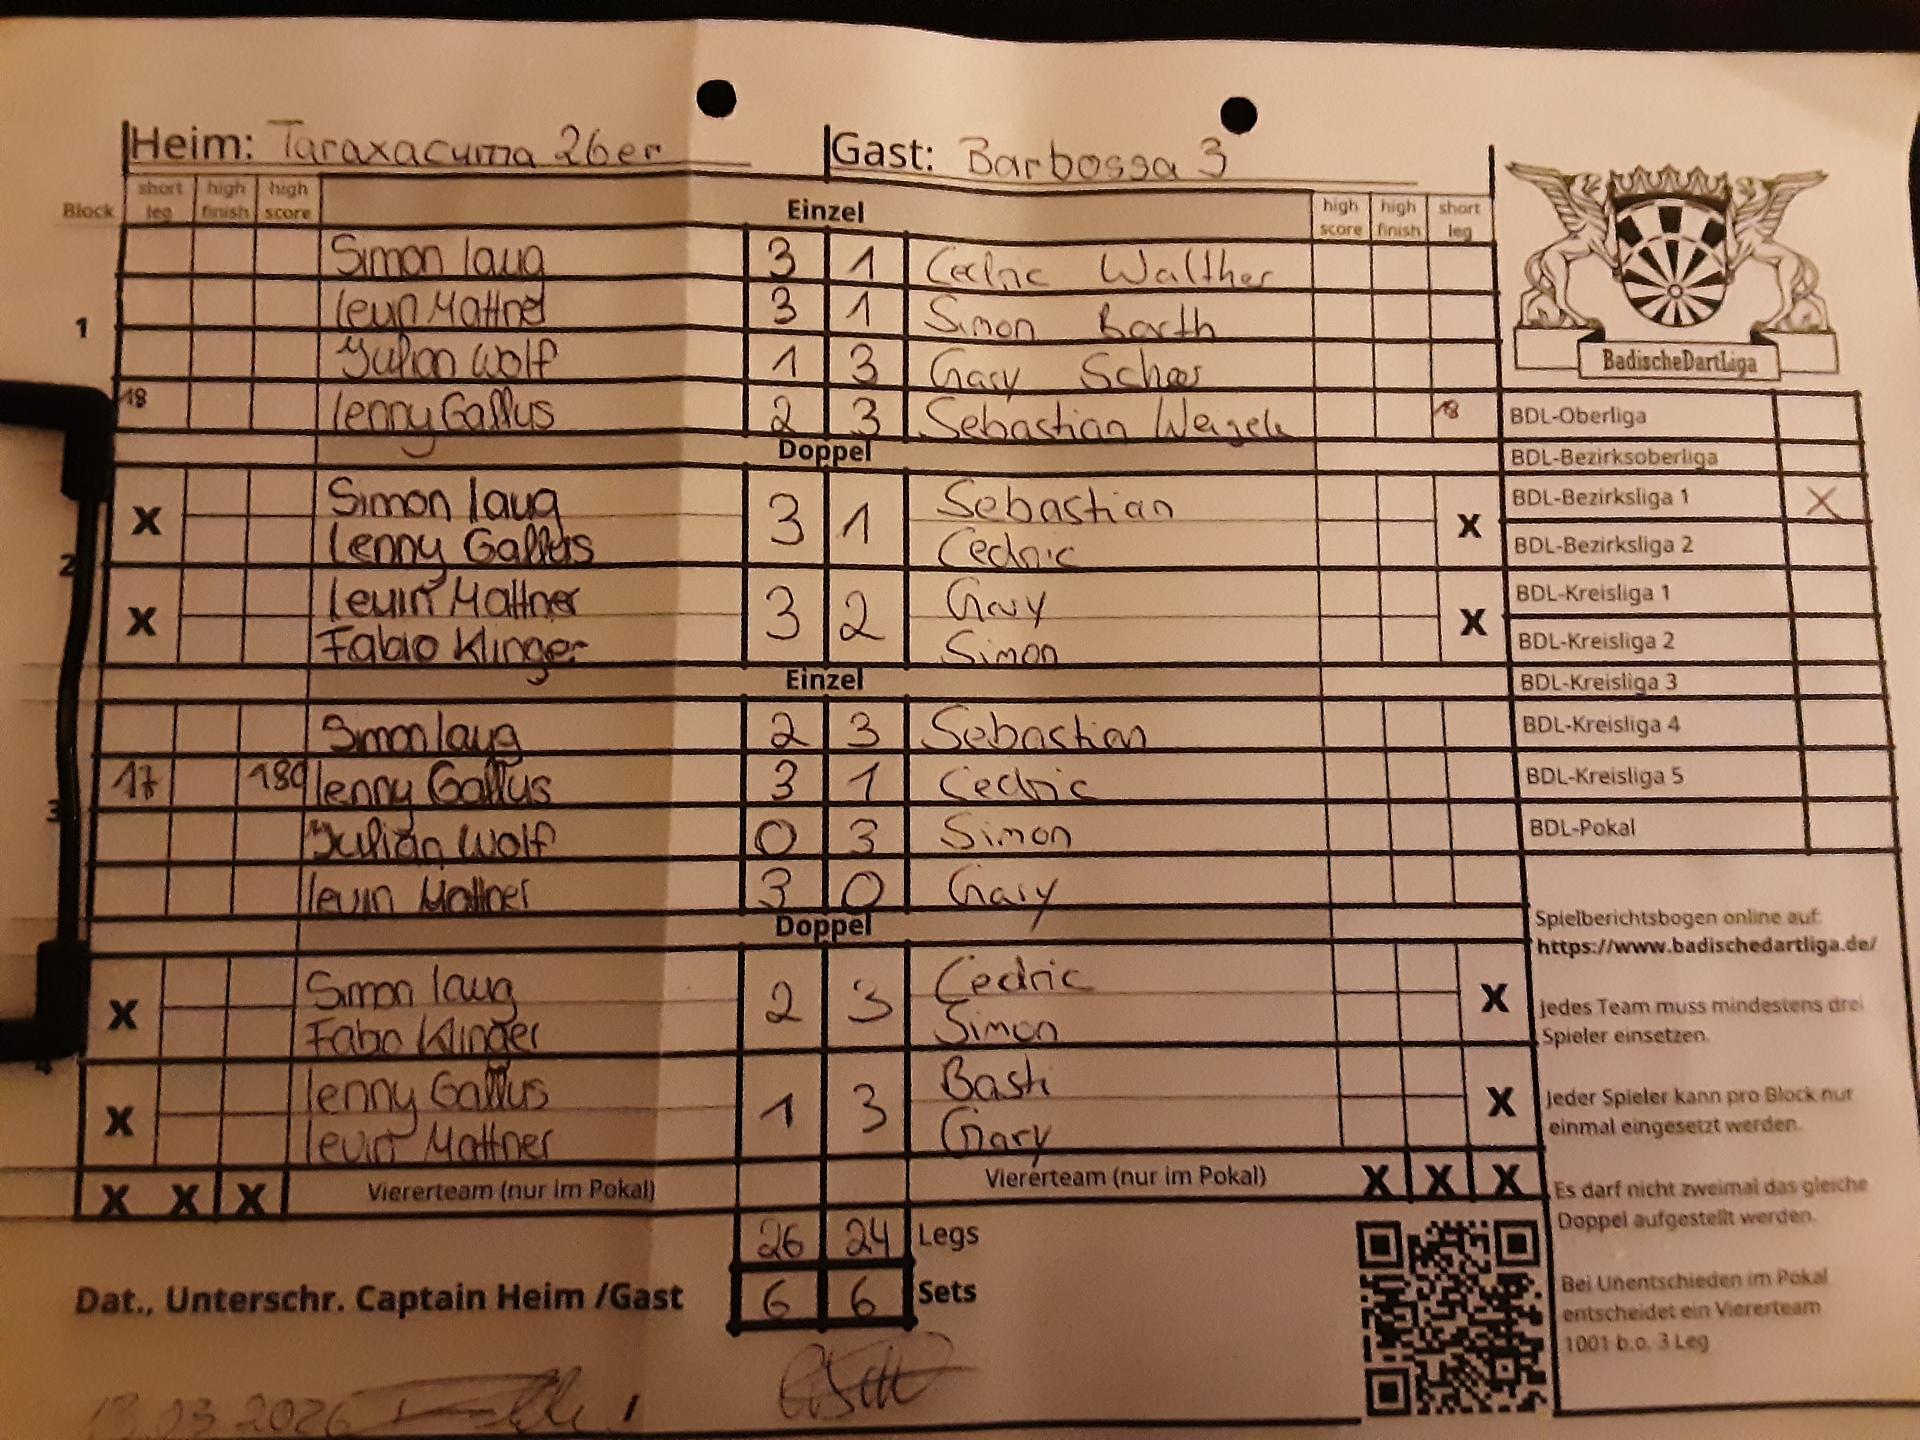 Heim: Taraxacuma 26er Gast: Barbossa 3
Block short leg high finish high score Einzel high score high finish short leg
Simon Laug 3 1 Cedric Walther
1 Levin Mattner 3 1 Simon Barth
Julian Wolf 1 3 Gary
18 Lenny Gallus 2 3 Sebastian Weigele 18
Doppel
X Simon Laug 3 1 Sebastian X
Lenny Gallus Cedric
2
X Levin Mattner 3 2 Gary X
Fabio Klinger Simon
Einzel
Simon Laug 2 3 Sebastian
17 180 Lenny Gallus 3 1 Cedric
3 Julian Wolf 0 3 Simon
Levin Mattner 3 0 Gary
Doppel
X Simon Laug 2 3 Cedric X
Fabio Klinger Simon
4
X Lenny Gallus 1 3 Basti X
Levin Mattner Gary
X X X Viererteam (nur im Pokal) Viererteam (nur im Pokal) X X X
26 24 Legs
Dat., Unterschr. Captain Heim /Gast 6 6 Sets
13.03.2026
BadischeDartLiga
BDL-Oberliga
BDL-Bezirksoberliga
BDL-Bezirksliga 1 X
BDL-Bezirksliga 2
BDL-Kreisliga 1
BDL-Kreisliga 2
BDL-Kreisliga 3
BDL-Kreisliga 4
BDL-Kreisliga 5
BDL-Pokal
Spielberichtsbogen online auf:
https://www.badischedartliga.de/
Jedes Team muss mindestens drei
Spieler einsetzen.
Jeder Spieler kann pro Block nur
einmal eingesetzt werden.
Es darf nicht zweimal das gleiche
Doppel aufgestellt werden.
Bei Unentschieden im Pokal
entscheidet ein Viererteam
1001 b.o. 3 Leg